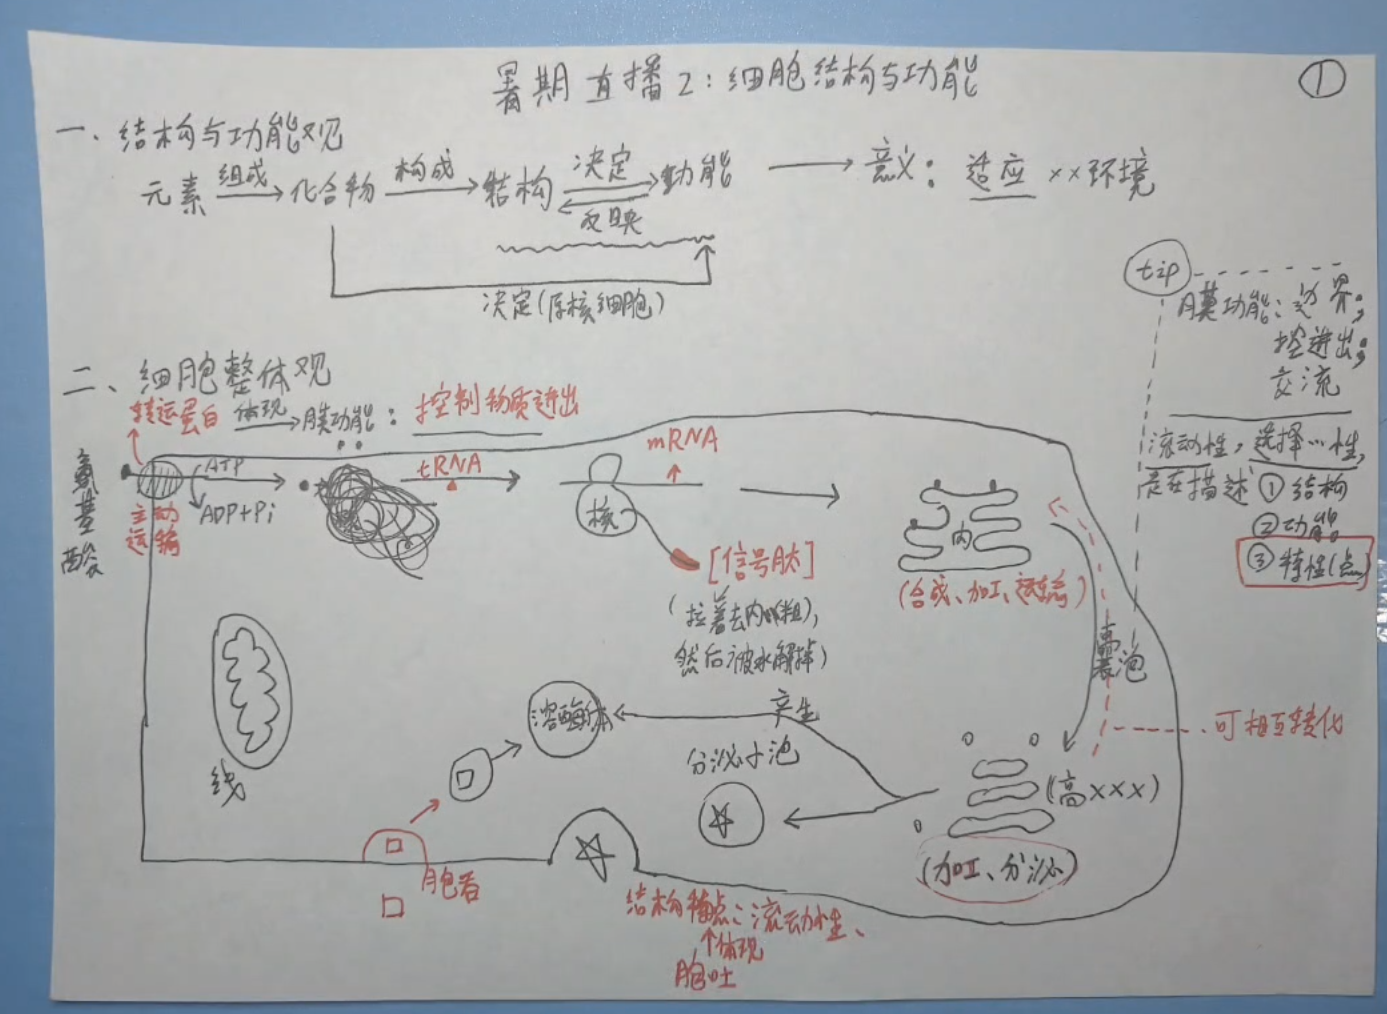 暑期直播2:细胞结构与功能
①
一、结构与功能观
元素 组成 化合物 构成 结构 决定 功能 意义: 适应 ××环境
反映
决定(原核细胞)
tip
膜功能: 边界;
控进出;
交流
流动性, 选择…性,
是在描述 ① 结构
② 功能
③ 特性(点)
二、细胞整体观
转运蛋白 体现 膜功能: 控制物质进出
氨基酸
ATP
ADP+Pi
主动运输
tRNA
mRNA
核
[信号肽]
(拉着去内网(粗),
然后被水解掉)
内
(合成、加工、运输)
囊泡
可相互转化
线
溶酶体
产生
分泌小泡
(高×××)
(加工、分泌)
胞吞
结构特点: 流动性、
体现
胞吐